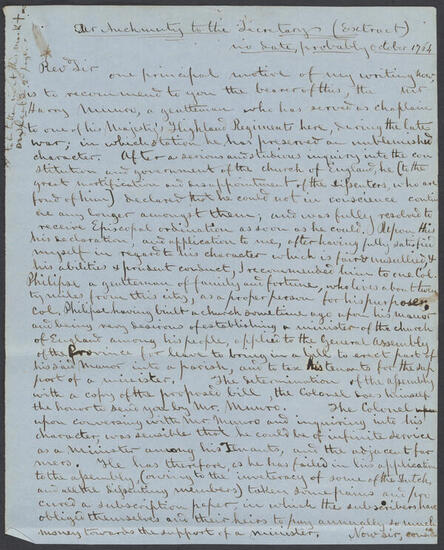 Mr Auchmuty to the Secretary (Extract)
no date, probably October 1764
Revd Sir
one principal motive of my writing now,
is to recommend to you the bearer of this, the Mr
Harry Munro, a gentleman who has served as chaplain
to one of his Majesty's Highland Regiments here, during the late
war; in which station he has preserved an unblemished
character. After a serious and studious inquiry into the con
stitution and government of the church of England, he (to the
great mortification and disappointment of the dissenters, who are
fond of him) declared that he could not in conscience contin
ue any longer amongst them; and was fully resolved to
receive Episcopal ordination as soon as he could. Upon this
his declaration, and application to me, after having fully satisfied
myself in regard to his character which is fair & unsullied, &
his abilities & prudent conduct, I recommended him to one Col.
Philipse a gentleman of family and fortune, who lives about twen
ty miles from this city, as a proper person for his purpose,
Col. Philipse having built a church sometime ago upon his manor
and being very desirous of establishing a minister of the church
of England among his people, applied to the General Assembly
of the Province for leave to bring in a bill to erect part of
his said Manor into a parish, and to tax his tenants for the sup
port of a minister. The determination of the assembly
with a copy of the proposed bill, the Colonel does himself
the honor to send you by Mr. Munro. The Colonel
upon conversing with Mr Munro and inquiring into his
character, was sensible that he could be of infinite service
as a Minister among his Tenants, and the adjacent far
mers. He has therefore, as he has failed in his application
to the assembly, (owing to the inveteracy of some of the Dutch
and all the dissenting members) taken some pains and pro
cured a subscription paper, in which the subscribers have
obliged themselves and their heirs to pay annually so much
money towards the support of a minister. Now Sir,